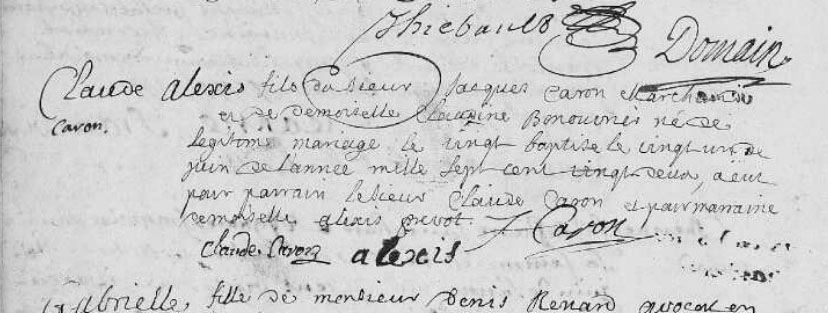 Thiebault Domain
Claude alexis fils du sieur Jacques Caron Marchand
Caron. et de demoiselle Claudine Bonouvrier né de
legitime mariage le vingt baptise le vingt un de
juin de l'année mille sept cent vingt deux, a eut
pour parrain le sieur Claude Caron et pour marraine
demoiselle alexis prevot. J Caron
Claude Caron alexis
Gabrielle, fille de monsieur Denis Renard avocat en